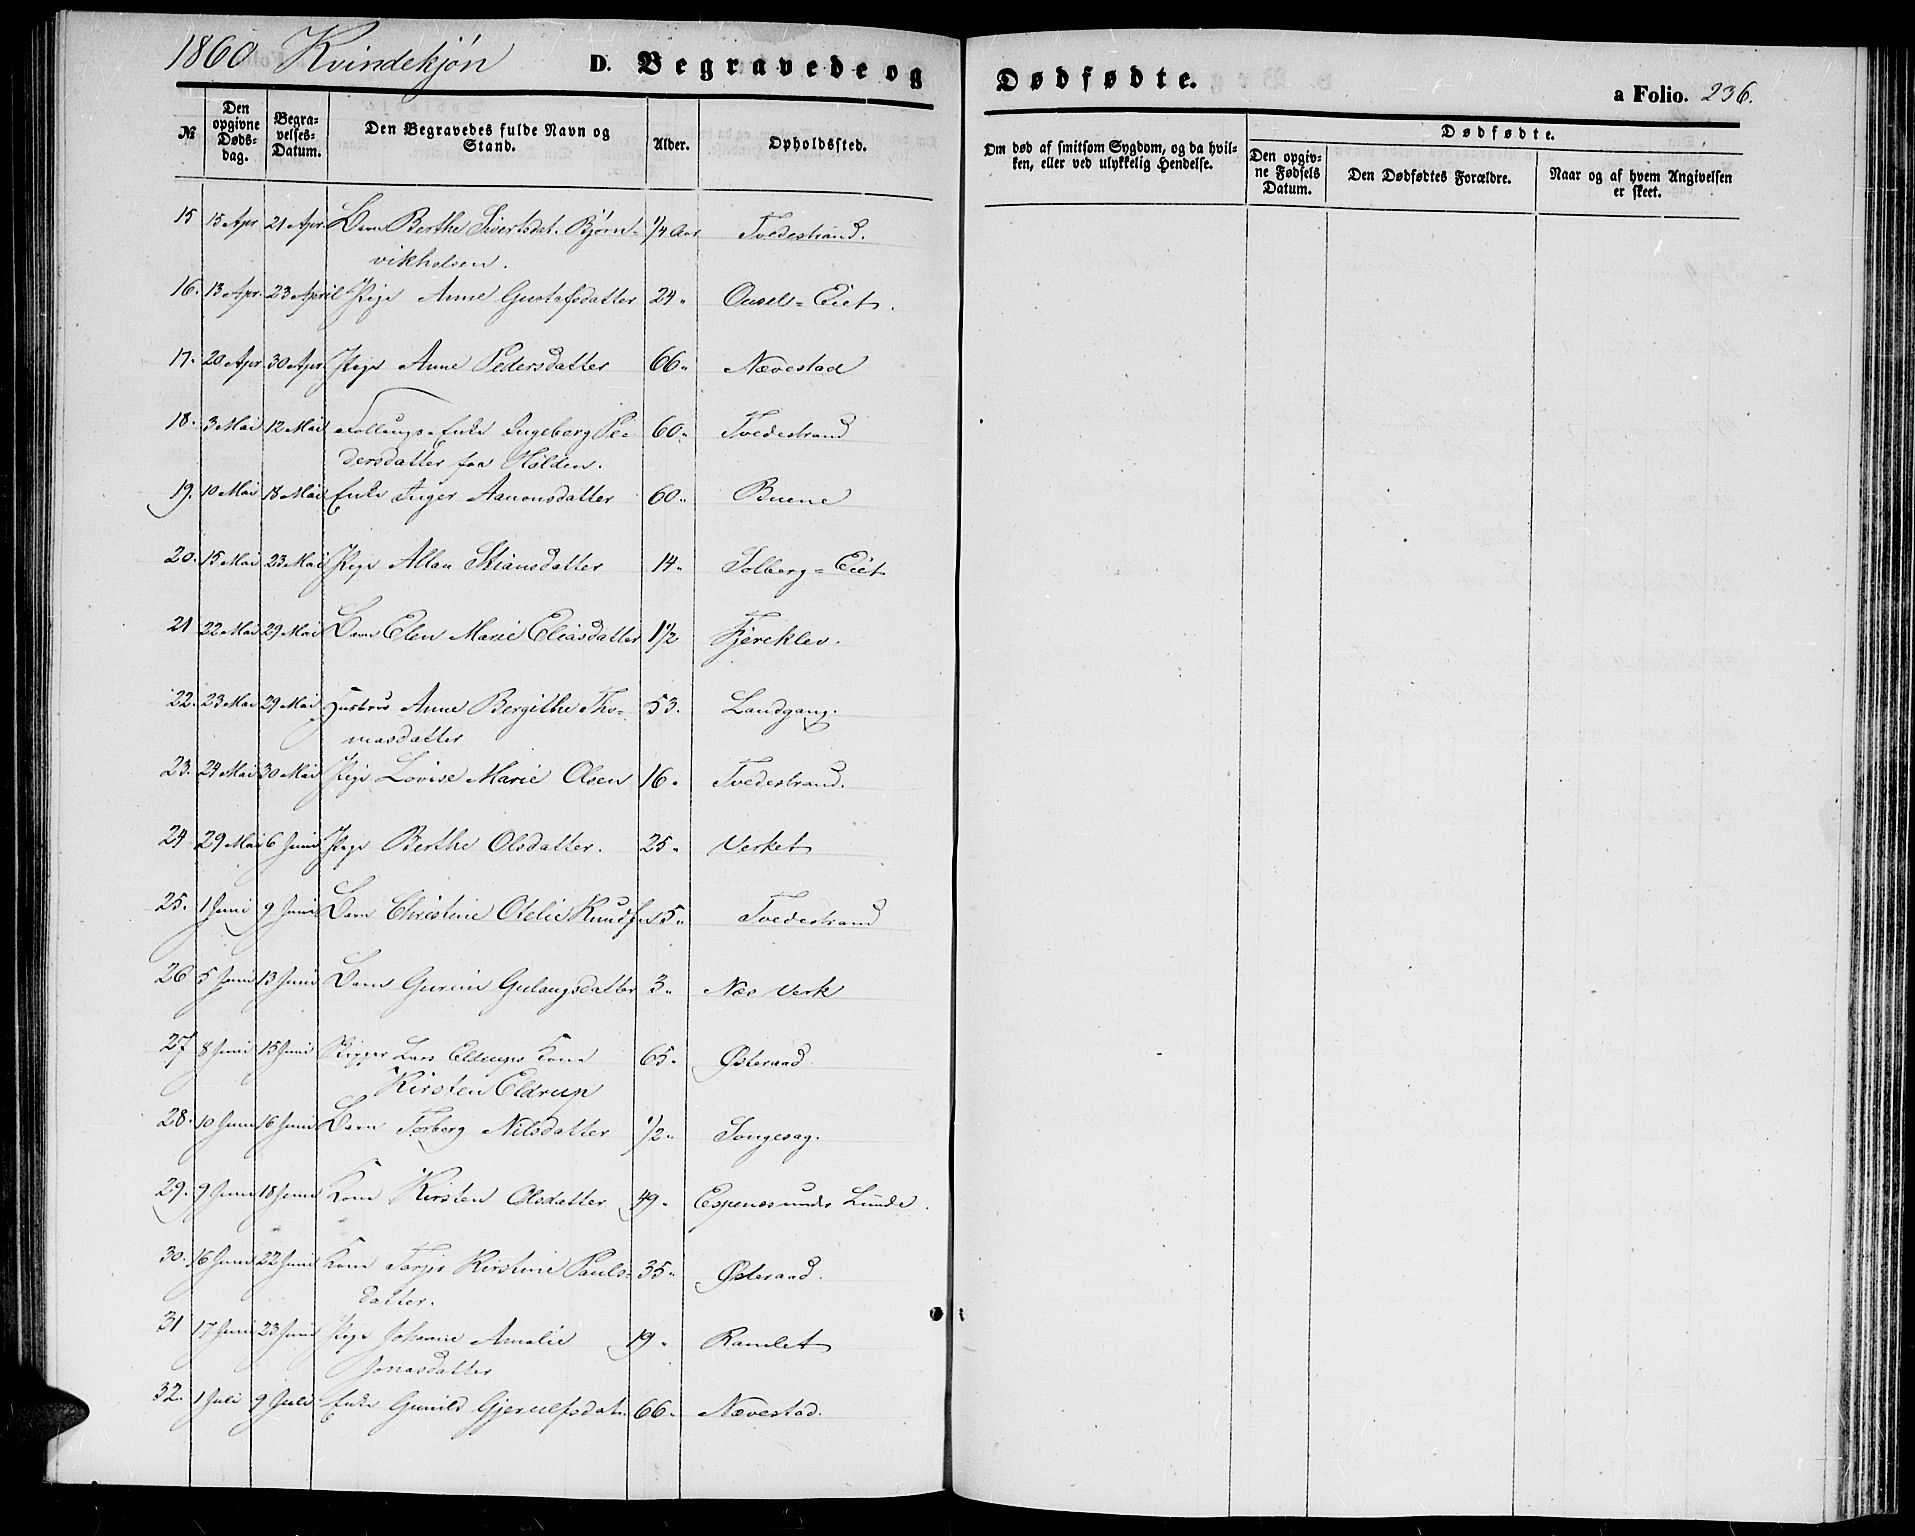 1860 Kvindekjøn D. Begravede og Dødfødte. a Folio. 236.
№ Den opgivne Døds-dag. Begra-velses-Datum. Den Begravedes fulde Navn og Stand. Alder. Opholdssted. Om død af smitsom Sygdom, og da hvil-ken, eller ved ulykkelig Hendelse. Dødfødte. Den opgiv-ne Fødsels Datum. Den Dødfødtes Forældre. Naar og af hvem Angivelsen er skeet.
15 15 Apr 21 Apr. Barn Berthe Sivertsdat. Bjørn- 1/4 Aar Tvedestrand.
vikholsen.
16. 13 Apr. 23 April Pige Anne Gustafsdatter 24 " Ousel-Eiet.
17. 20 Apr 30 Apr. Pige Anne Pedersdatter 66 " Nævestad
18. 3 Mai 12 Mai Enke Ingeberg Pe- 60 " Tvedestrand
dersdatter fra Holden.
19. 10 Mai 18 Mai Enke Inger Aanonsdatter 60 " Buene
20. 15 Mai 23 Mai Pige Allau Stiansdatter 14 " Solberg-Eiet
21 22 Mai 29 Mai Barn Elen Marie Eliasdatter 1 1/2 Fjereklev.
22. 23 Mai 29 Mai Hustrue Anne Bergithe Tho- 53. Landgang.
masdatter
23. 24 Mai 30 Mai Pige Lovise Marie Olsen 16 " Tvedestrand.
24 29 Mai 6 Juni Pige Berthe Olsdatter. 25 " Verket
25. 1 Juni 9 Juni Barn Christine Otelie Knudsen 5 " Tvedestrand
26 5 Juni 13 Juni Barn Gurine Gulaugsdatter 3 " Næs Verk
27 8 Juni 15 Juni Rigger Lars Eldrups Kone 65 " Østeraad
Kirsten Eldrup
28. 10 Juni 16 Juni Barn Torberg Nilsdatter 1/2 " Songesag.
29. 9 Juni 18 Juni Kone Kirsten Olsdatter 49 " Espenes under Lunde.
30. 16 Juni 22 Juni Kone Tarjer Kirstine Pauls- 35 " Østeraad.
datter.
31 17 Juni 23 Juni Pige Johanne Amalie 19 " Ramlet
Jonasdatter
32. 1 Juli 9 Juli Enke Gunild Gjerulfsdatr. 66 " Nævestad.